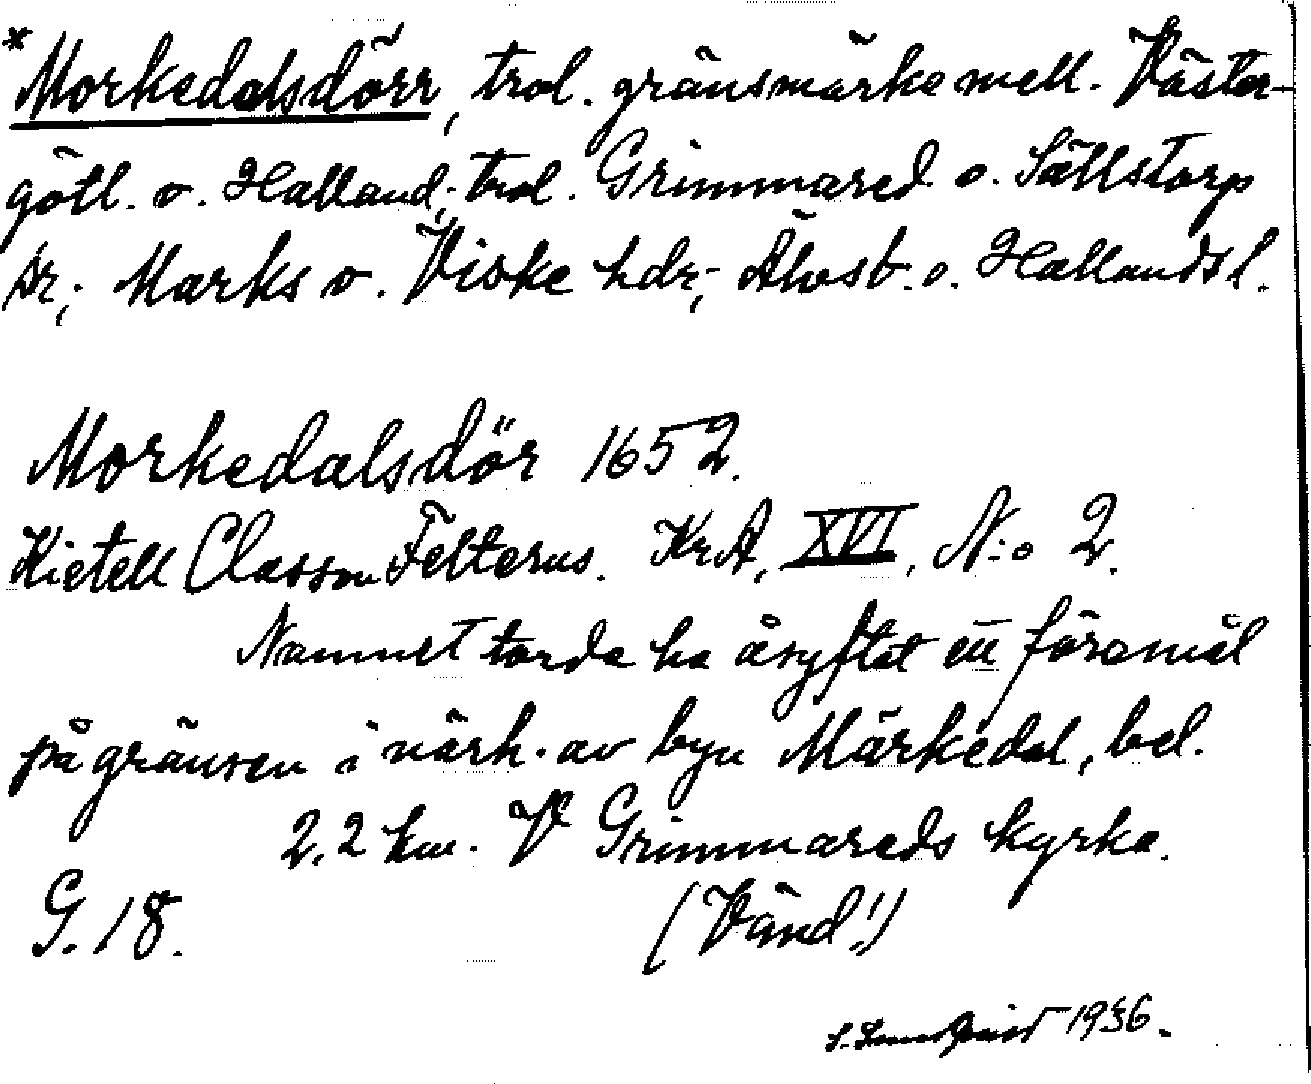 *Morkedalsdörr, trol. gränsmärke mell. Väster-
götl. o. Halland; trol. Grimmared o. Sällstorp
sr; Marks o. Viske hdr; Älvsb. o. Hallands l.
Morkedalsdör 1652.
Kietell Classon Felterus. KrA, XVI, N:o 2.
Namnet torde ha åsyftat ett föremål
på gränsen i närh. av byn Märkedal, bel.
2,2 km. V Grimmareds kyrka.
G. 18. (Vänd!)